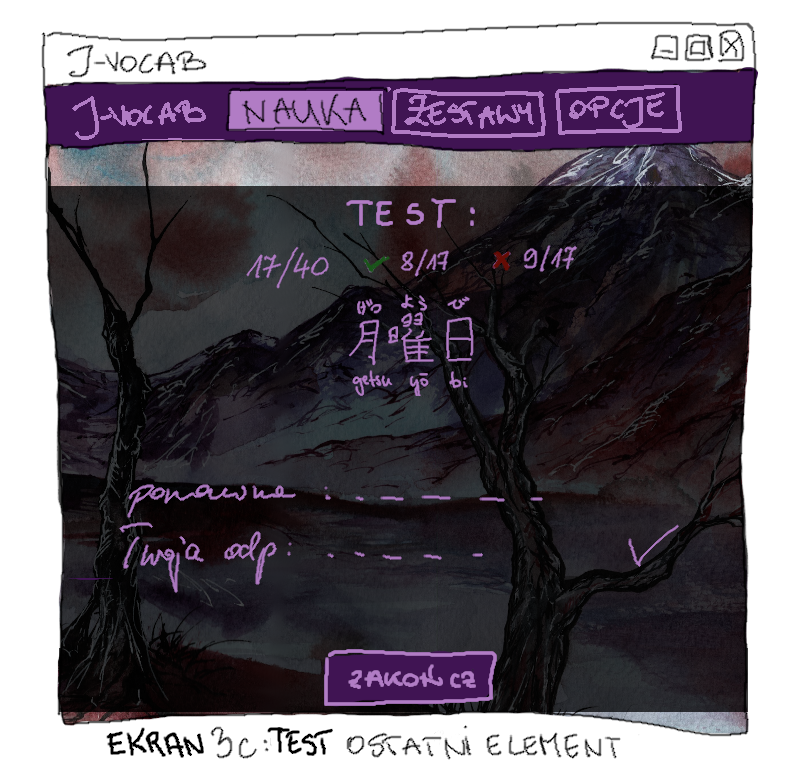 J-VOCAB
J-VOCAB NAUKA ZESTAWY OPCJE
TEST:
17/40 ✓ 8/17 ✗ 9/17
げつ よう び
月曜日
getsu yō bi
ponowne : . _ _ _ _ _
Twoja odp: - - _ _ - ✓
ZAKOŃCZ
EKRAN 3c: TEST OSTATNI ELEMENT